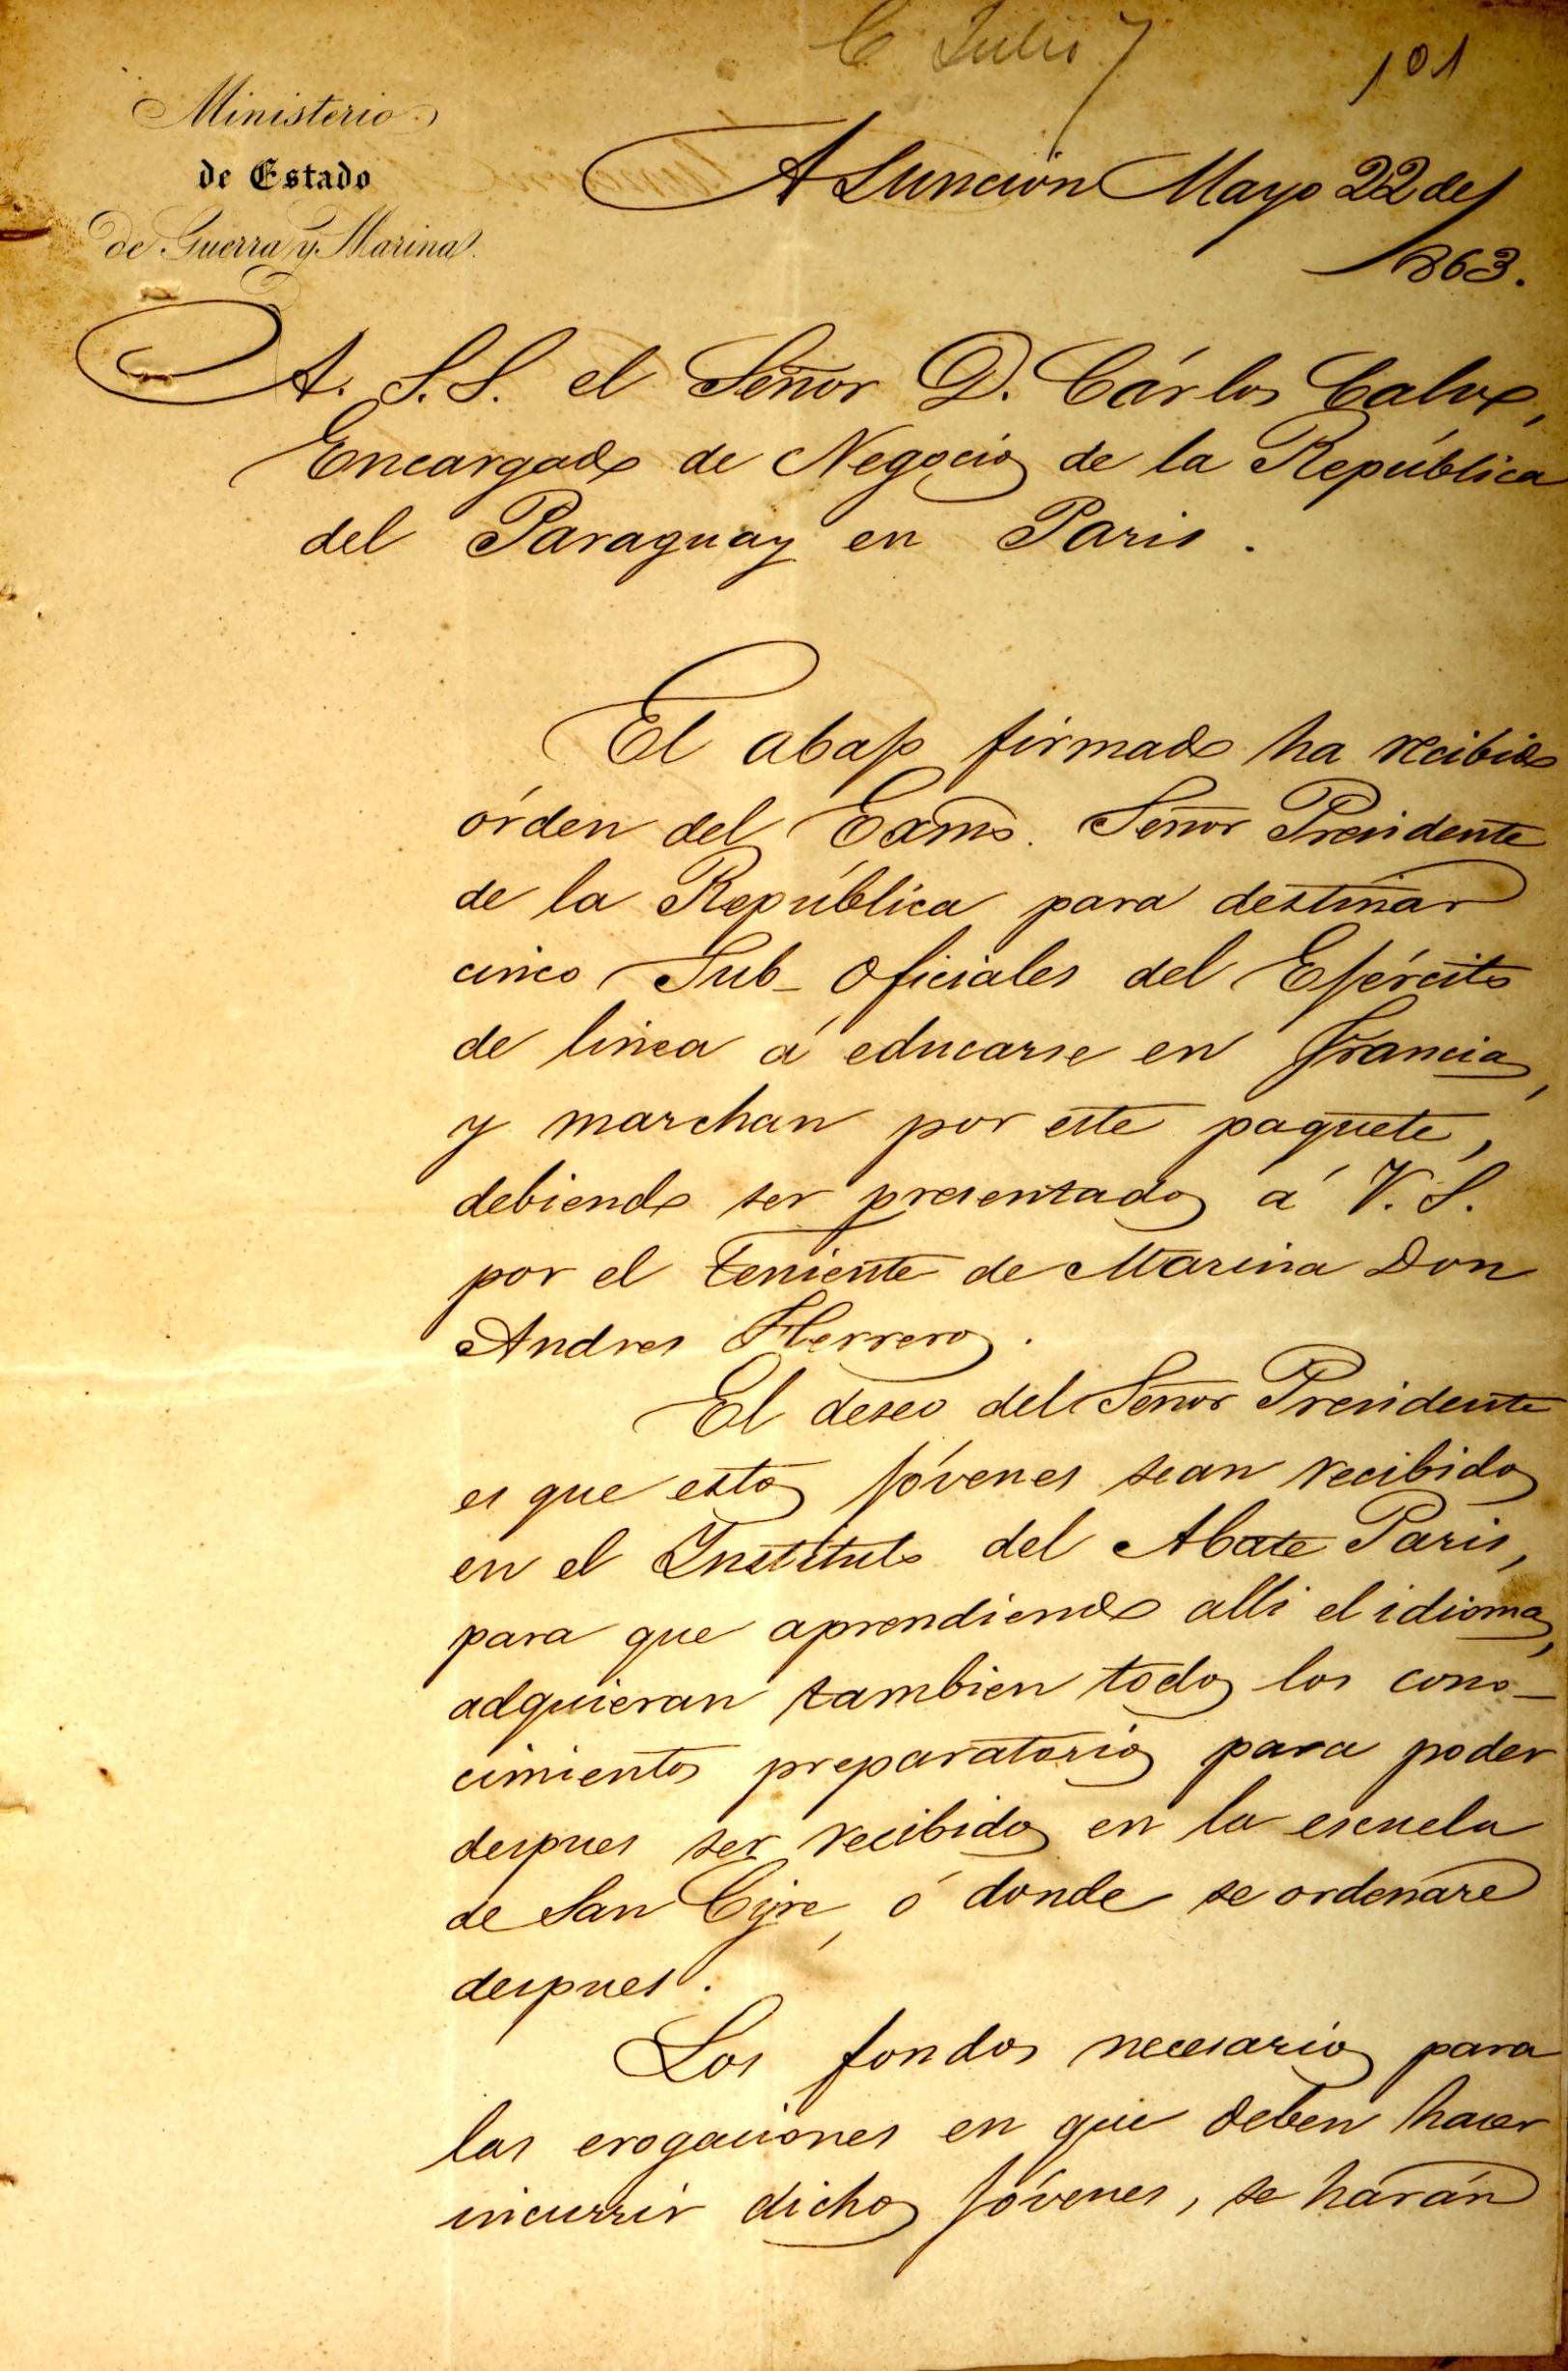 C Julio 7
101
Ministerio
de Estado
de Guerra y Marina.
Asuncion Mayo 22 de
1863.
A. S.S. el Señor D. Cárlos Calvo,
Encargado de Negocios de la República
del Paraguay en Paris.
El abajo firmado ha recibido
órden del Exmo. Señor Presidente
de la República para destinar
cinco Sub-Oficiales del Ejército
de linea á educarse en Francia,
y marchan por este paquete,
debiendo ser presentados á V. S.
por el Teniente de Marina Don
Andres Herreros.
El deseo del Señor Presidente
es que estos jóvenes sean recibidos
en el Instituto del Abate Paris,
para que aprendiendo alli el idioma,
adquieran tambien todos los cono-
cimientos preparatorios para poder
despues ser recibidos en la escuela
de San Cyre, ó donde se ordenare
despues.
Los fondos necesarios para
las erogaciones en que deben hacer
incurrir dichos jóvenes, se harán